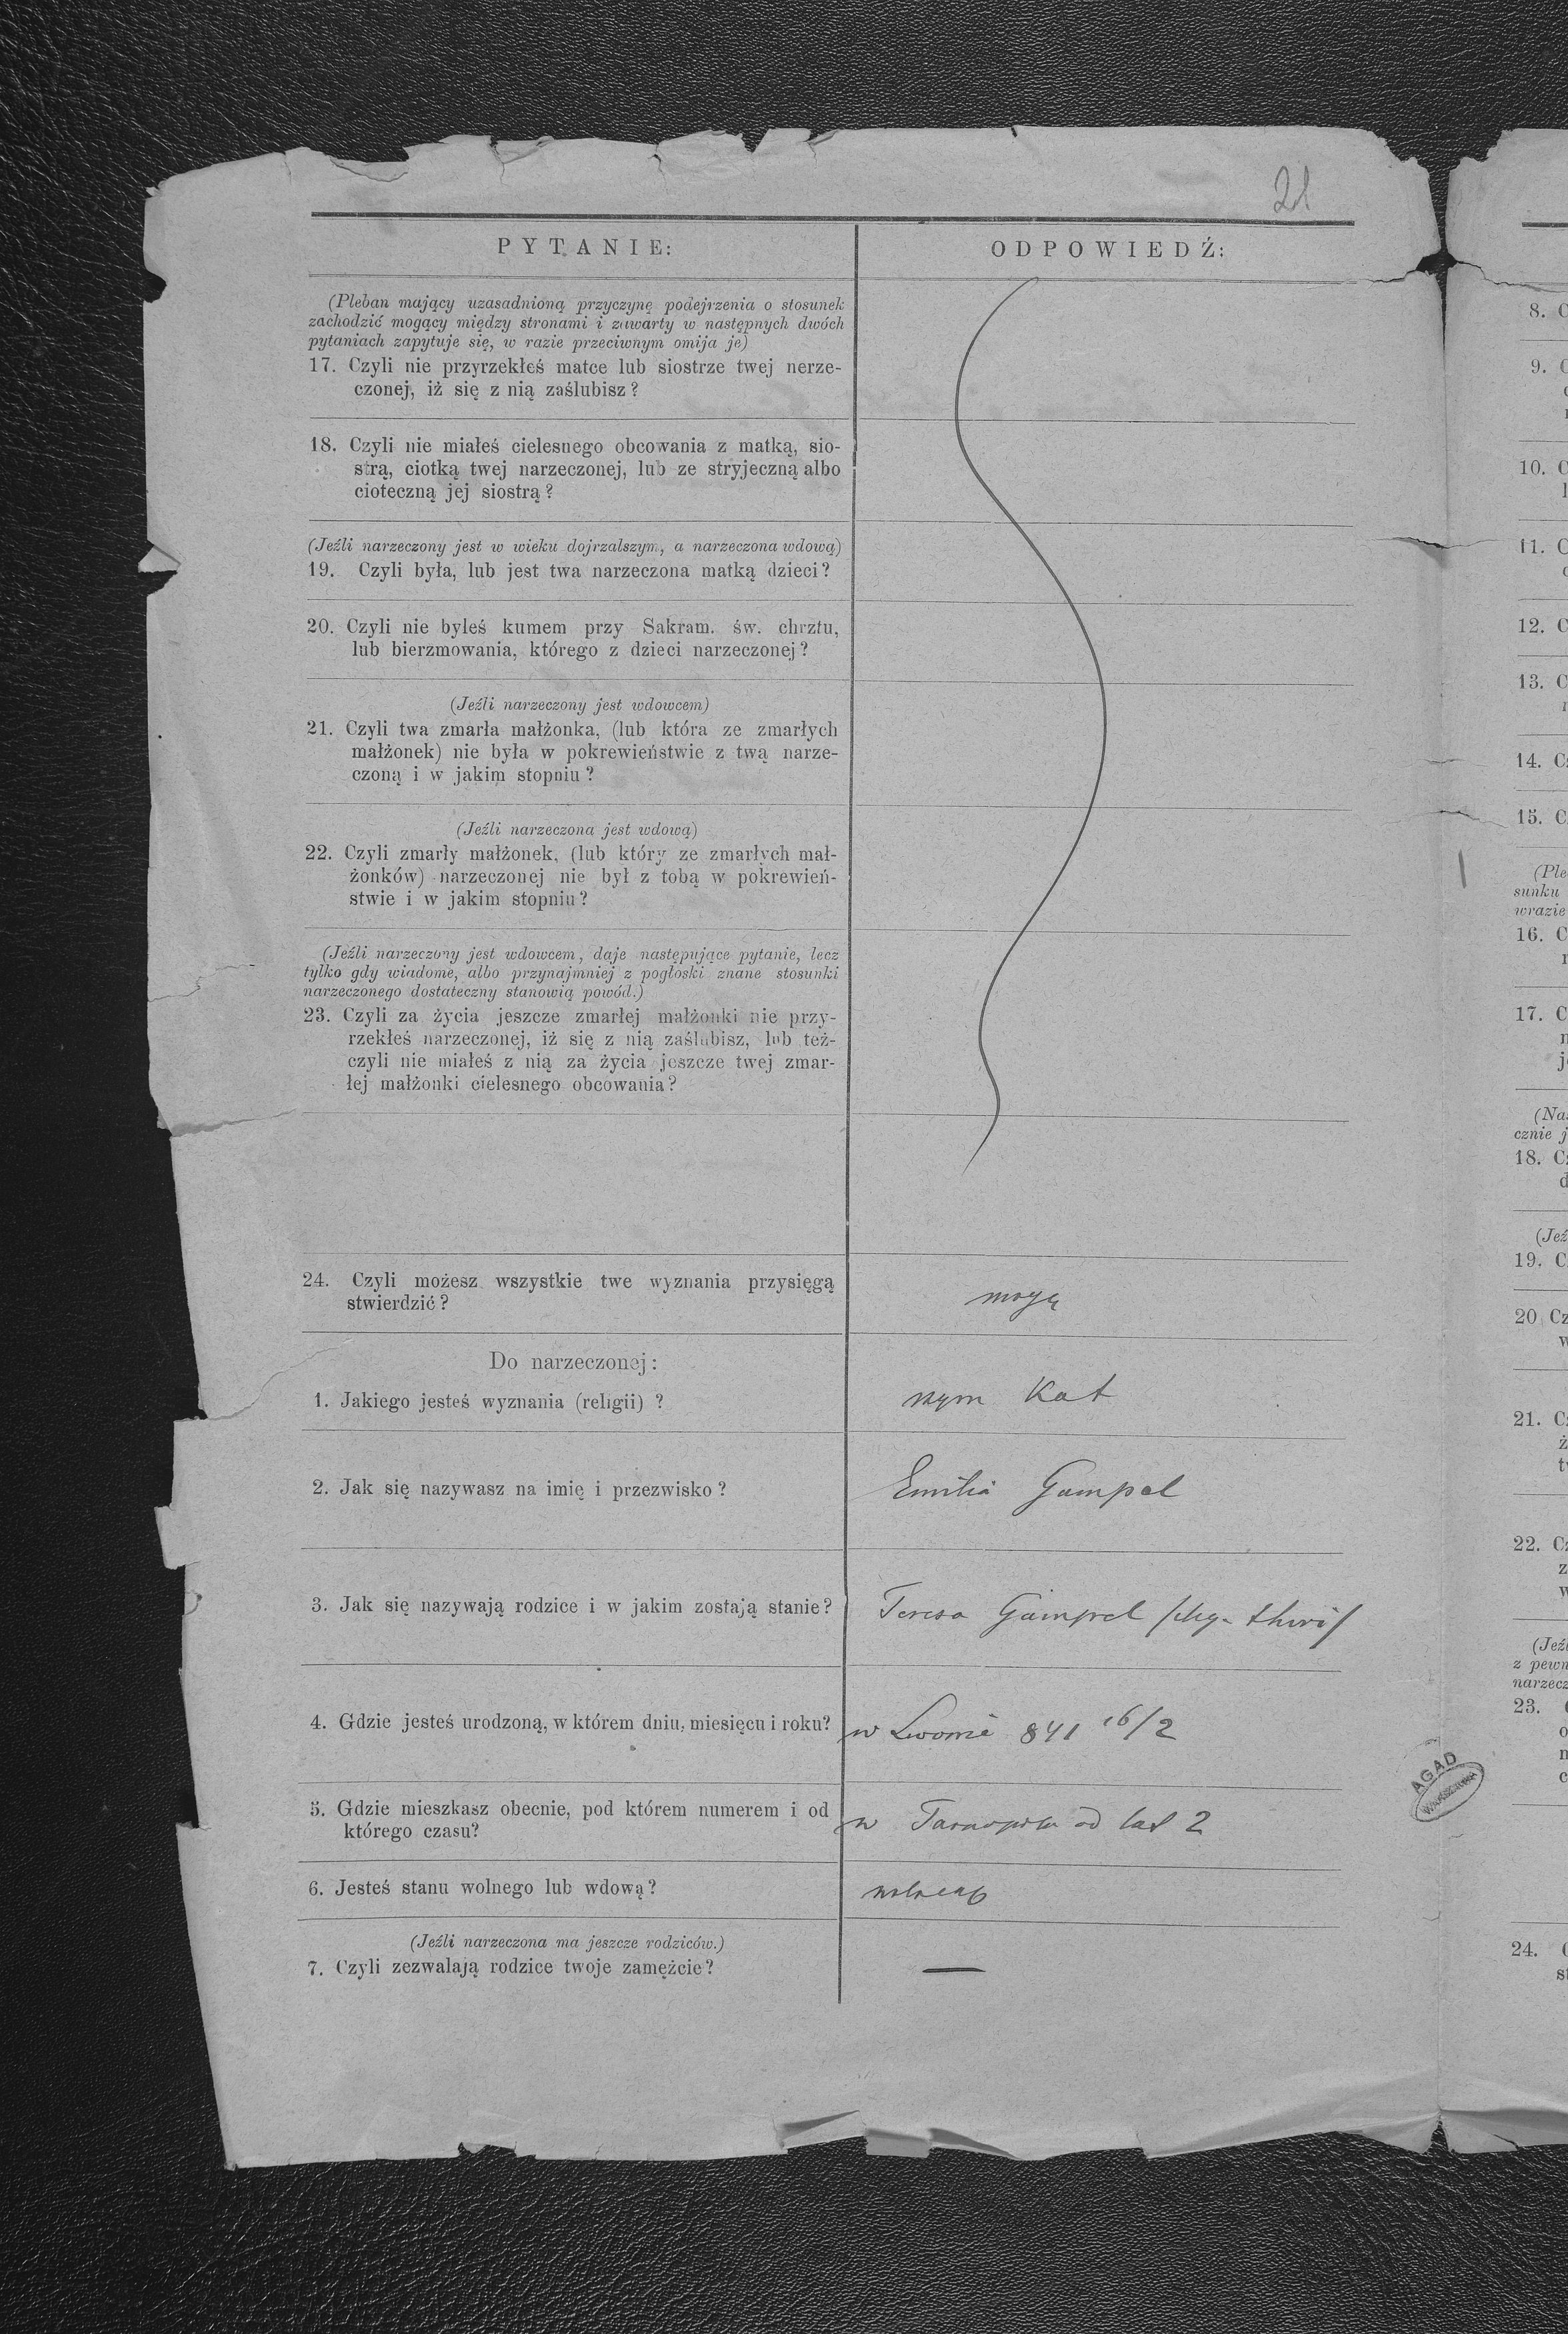 21
PYTANIE:
ODPOWIEDŹ:
(Pleban mający uzasadnioną przyczynę podejrzenia o stosunek
zachodzić mogący między stronami i zawarty w następnych dwóch
pytaniach zapytuje się, w razie przeciwnym omija je)
17. Czyli nie przyrzekłeś matce lub siostrze twej nerze-
czonej, iż się z nią zaślubisz?
18. Czyli nie miałeś cielesnego obcowania z matką, sio-
strą, ciotką twej narzeczonej, lub ze stryjeczną albo
cioteczną jej siostrą?
(Jeźli narzeczony jest w wieku dojrzalszym, a narzeczona wdową)
19. Czyli była, lub jest twa narzeczona matką dzieci?
20. Czyli nie byłeś kumem przy Sakram. św. chrztu,
lub bierzmowania, którego z dzieci narzeczonej?
(Jeźli narzeczony jest wdowcem)
21. Czyli twa zmarła małżonka, (lub która ze zmarłych
małżonek) nie była w pokrewieństwie z twą narze-
czoną i w jakim stopniu?
(Jeźli narzeczona jest wdową)
22. Czyli zmarły małżonek, (lub który ze zmarłych mał-
żonków) narzeczonej nie był z tobą w pokrewień-
stwie i w jakim stopniu?
(Jeźli narzeczony jest wdowcem, daje następujące pytanie, lecz
tylko gdy wiadome, albo przynajmniej z pogłoski znane stosunki
narzeczonego dostateczny stanowią powód.)
23. Czyli za życia jeszcze zmarłej małżonki nie przy-
rzekłeś narzeczonej, iż się z nią zaślubisz, lub też-
czyli nie miałeś z nią za życia jeszcze twej zmar-
łej małżonki cielesnego obcowania?
24. Czyli możesz wszystkie twe wyznania przysięgą
stwierdzić?
mogę
Do narzeczonej:
1. Jakiego jesteś wyznania (religii) ?
rzym Kat
2. Jak się nazywasz na imię i przezwisko?
Emilia Gampel
3. Jak się nazywają rodzice i w jakim zostają stanie?
Teresa Gampel
4. Gdzie jesteś urodzoną, w którem dniu, miesięcu i roku?
w Lwowie 841 16/2
5. Gdzie mieszkasz obecnie, pod którem numerem i od
którego czasu?
w Tarnopolu od lat 2
6. Jesteś stanu wolnego lub wdową?
wolnego
(Jeźli narzeczona ma jeszcze rodziców.)
7. Czyli zezwalają rodzice twoje zamężcie?
—
AGAD
WARSZAWA
8. C
9. C
10. C
11. C
12. C
13. C
14. Cz
15. C
(Ple
sunku
wrazie
16. C
17. C
(Na
cznie j
18. Cz
d
(Jeź
19. C
20 Cz
w
21. Cz
ż
t
22. Cz
z
w
(Jeźl
z pewn
narzecz
23.
24.
st